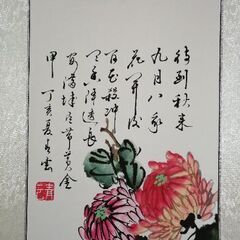 待到秋来
九月八我
花开后
百花杀冲
天香阵透长
安满城尽带黄金
甲 丁亥夏